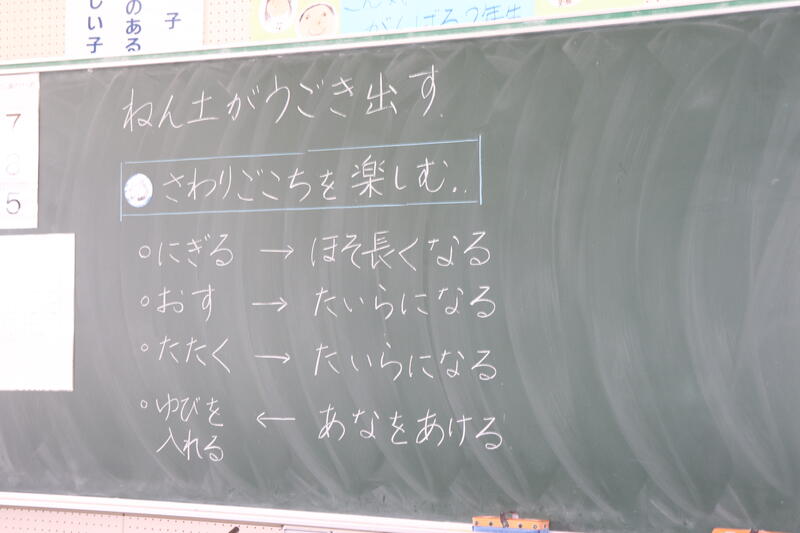 子
のある
しい子
がんばる2年生
7
5
ねん土がうごき出す
さわりごこちを楽しむ..
○にぎる → ほそ長くなる
○おす → たいらになる
○たたく → たいらになる
○ゆびを入れる ← あなをあける